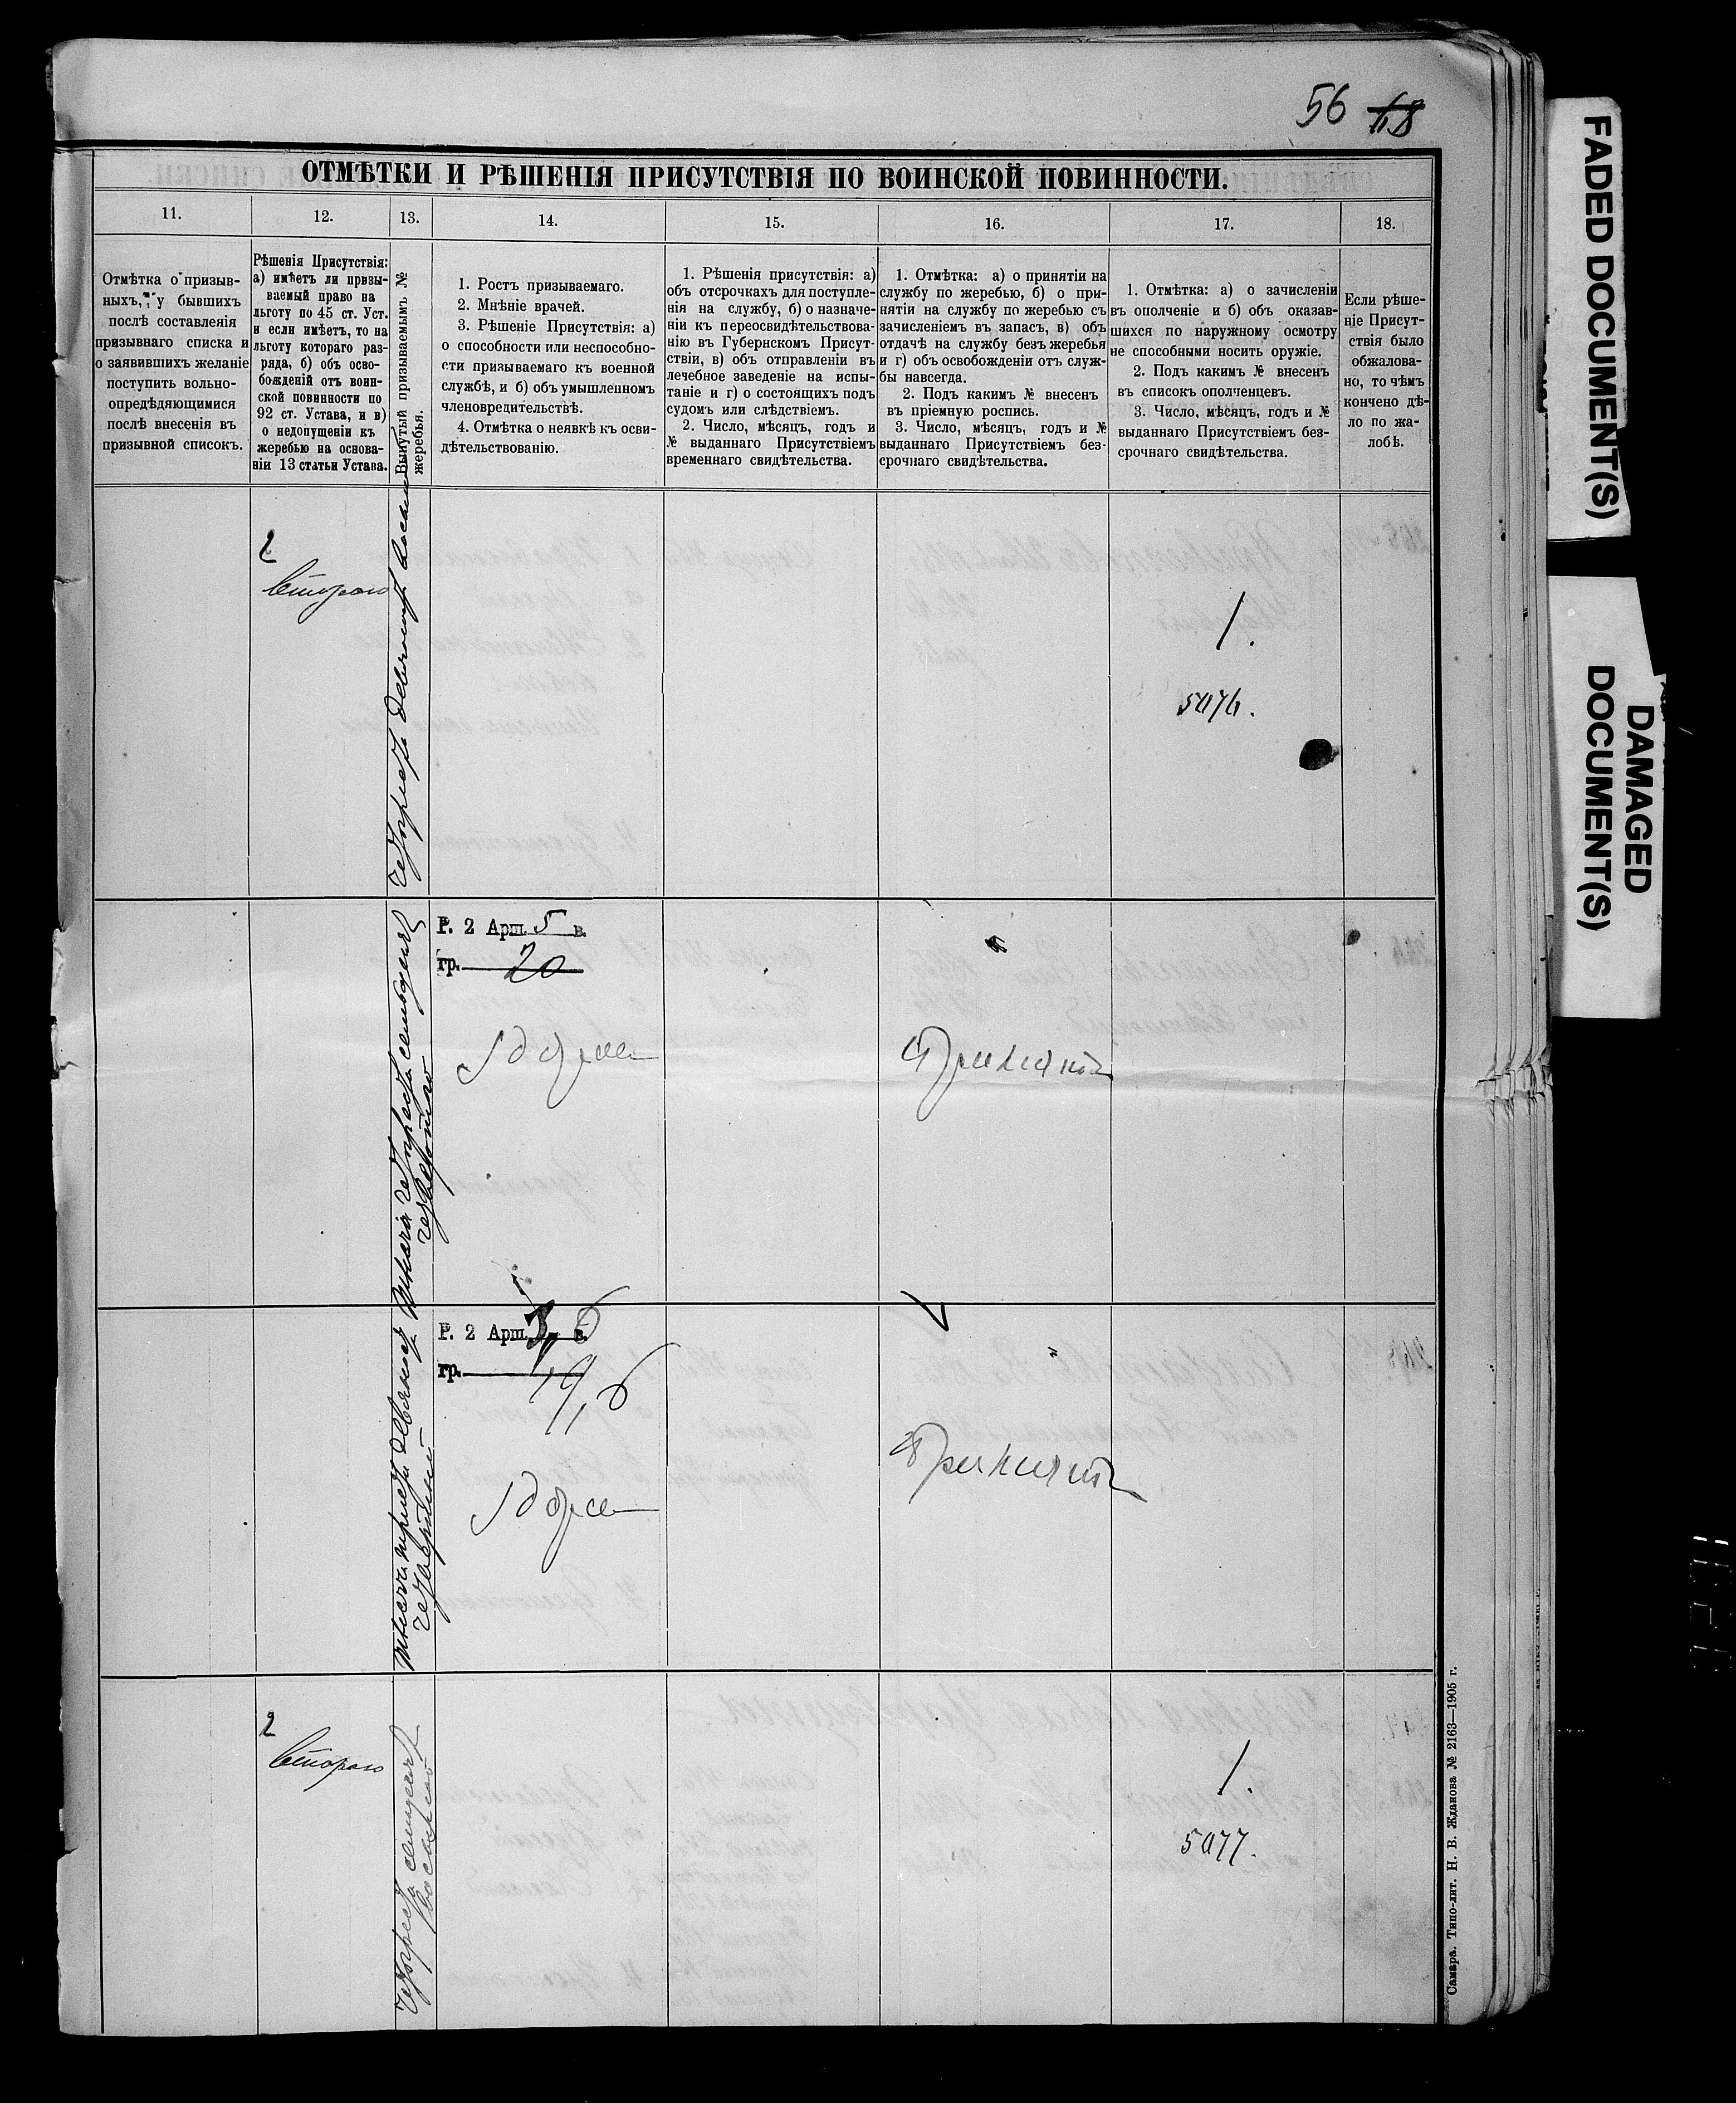 56 68
ОТМѢТКИ И РѢШЕНІЯ ПРИСУТСТВІЯ ПО ВОИНСКОЙ ПОВИННОСТИ.
11.
12.
13.
14.
15.
16.
17.
18.
Отмѣтка о призыв-
ныхъ, у бывшихъ
послѣ составленія
призывнаго списка и
о заявившихъ желаніе
поступить вольно-
опредѣляющимися
послѣ внесенія въ
призывной списокъ.
Рѣшенія Присутствія:
а) имѣетъ ли призы-
ваемый право на
льготу по 45 ст. Уст.
и если имѣетъ, то на
льготу котораго раз-
ряда, б) объ осво-
божденій отъ воин-
ской повинности по
92 ст. Устава, и в)
о недопущеніи къ
жеребью на основа-
ніи 13 статьи Устава.
Вынутый призываемымъ №
жеребья.
1. Ростъ призываемаго.
2. Мнѣніе врачей.
3. Рѣшеніе Присутствія: а)
о способности или неспособно-
сти призываемаго къ военной
службѣ, и б) объ умышленномъ
членовредительствѣ.
4. Отмѣтка о неявкѣ къ осви-
дѣтельствованію.
1. Рѣшенія присутствія: а)
объ отсрочкахъ для поступле-
нія на службу, б) о назначе-
ніи къ переосвидѣтельствова-
нію въ Губернскомъ Присут-
ствіи, в) объ отправленіи въ
лечебное заведеніе на испы-
таніе и г) о состоящихъ подъ
судомъ или слѣдствіемъ.
2. Число, мѣсяцъ, годъ и
№ выданнаго Присутствіемъ
временнаго свидѣтельства.
1. Отмѣтка: а) о принятіи на
службу по жеребью, б) о при-
нятіи на службу по жеребью съ
зачисленіемъ въ запасъ, в) объ
отдачѣ на службу безъ жеребья
и г) объ освобожденіи отъ служ-
бы навсегда.
2. Подъ какимъ № внесенъ
въ пріемную роспись.
3. Число, мѣсяцъ, годъ и №
выданнаго Присутствіемъ без-
срочнаго свидѣтельства.
1. Отмѣтка: а) о зачисленіи
въ ополченіе и б) объ оказав-
шихся по наружному осмотру
не способными носить оружіе.
2. Подъ какимъ № внесенъ
въ списокъ ополченцевъ.
3. Число, мѣсяцъ, годъ и №
выданнаго Присутствіемъ без-
срочнаго свидѣтельства.
Если рѣше-
ніе Присут-
ствія было
обжалова-
но, то чѣмъ
кончено дѣ-
ло по жа-
лобѣ.
2
второго
четыреста девяносто восьмой
1.
5076.
Р. 2 Арш. 5 в.
гр. 20
Годенъ
Принятъ
тысяча четыреста семьдесятъ
четвертый
Р. 2 Арш. 6 в.
гр. 19,6
Годенъ
Принятъ
тысяча триста девяносто
четвертый
2
второго
четыреста семьдесятъ
восьмой
1.
5077.
Самара. Типо-лит. Н. В. Жданова № 2163—1905 г.
FADED DOCUMENT(S)
DAMAGED
DOCUMENT(S)